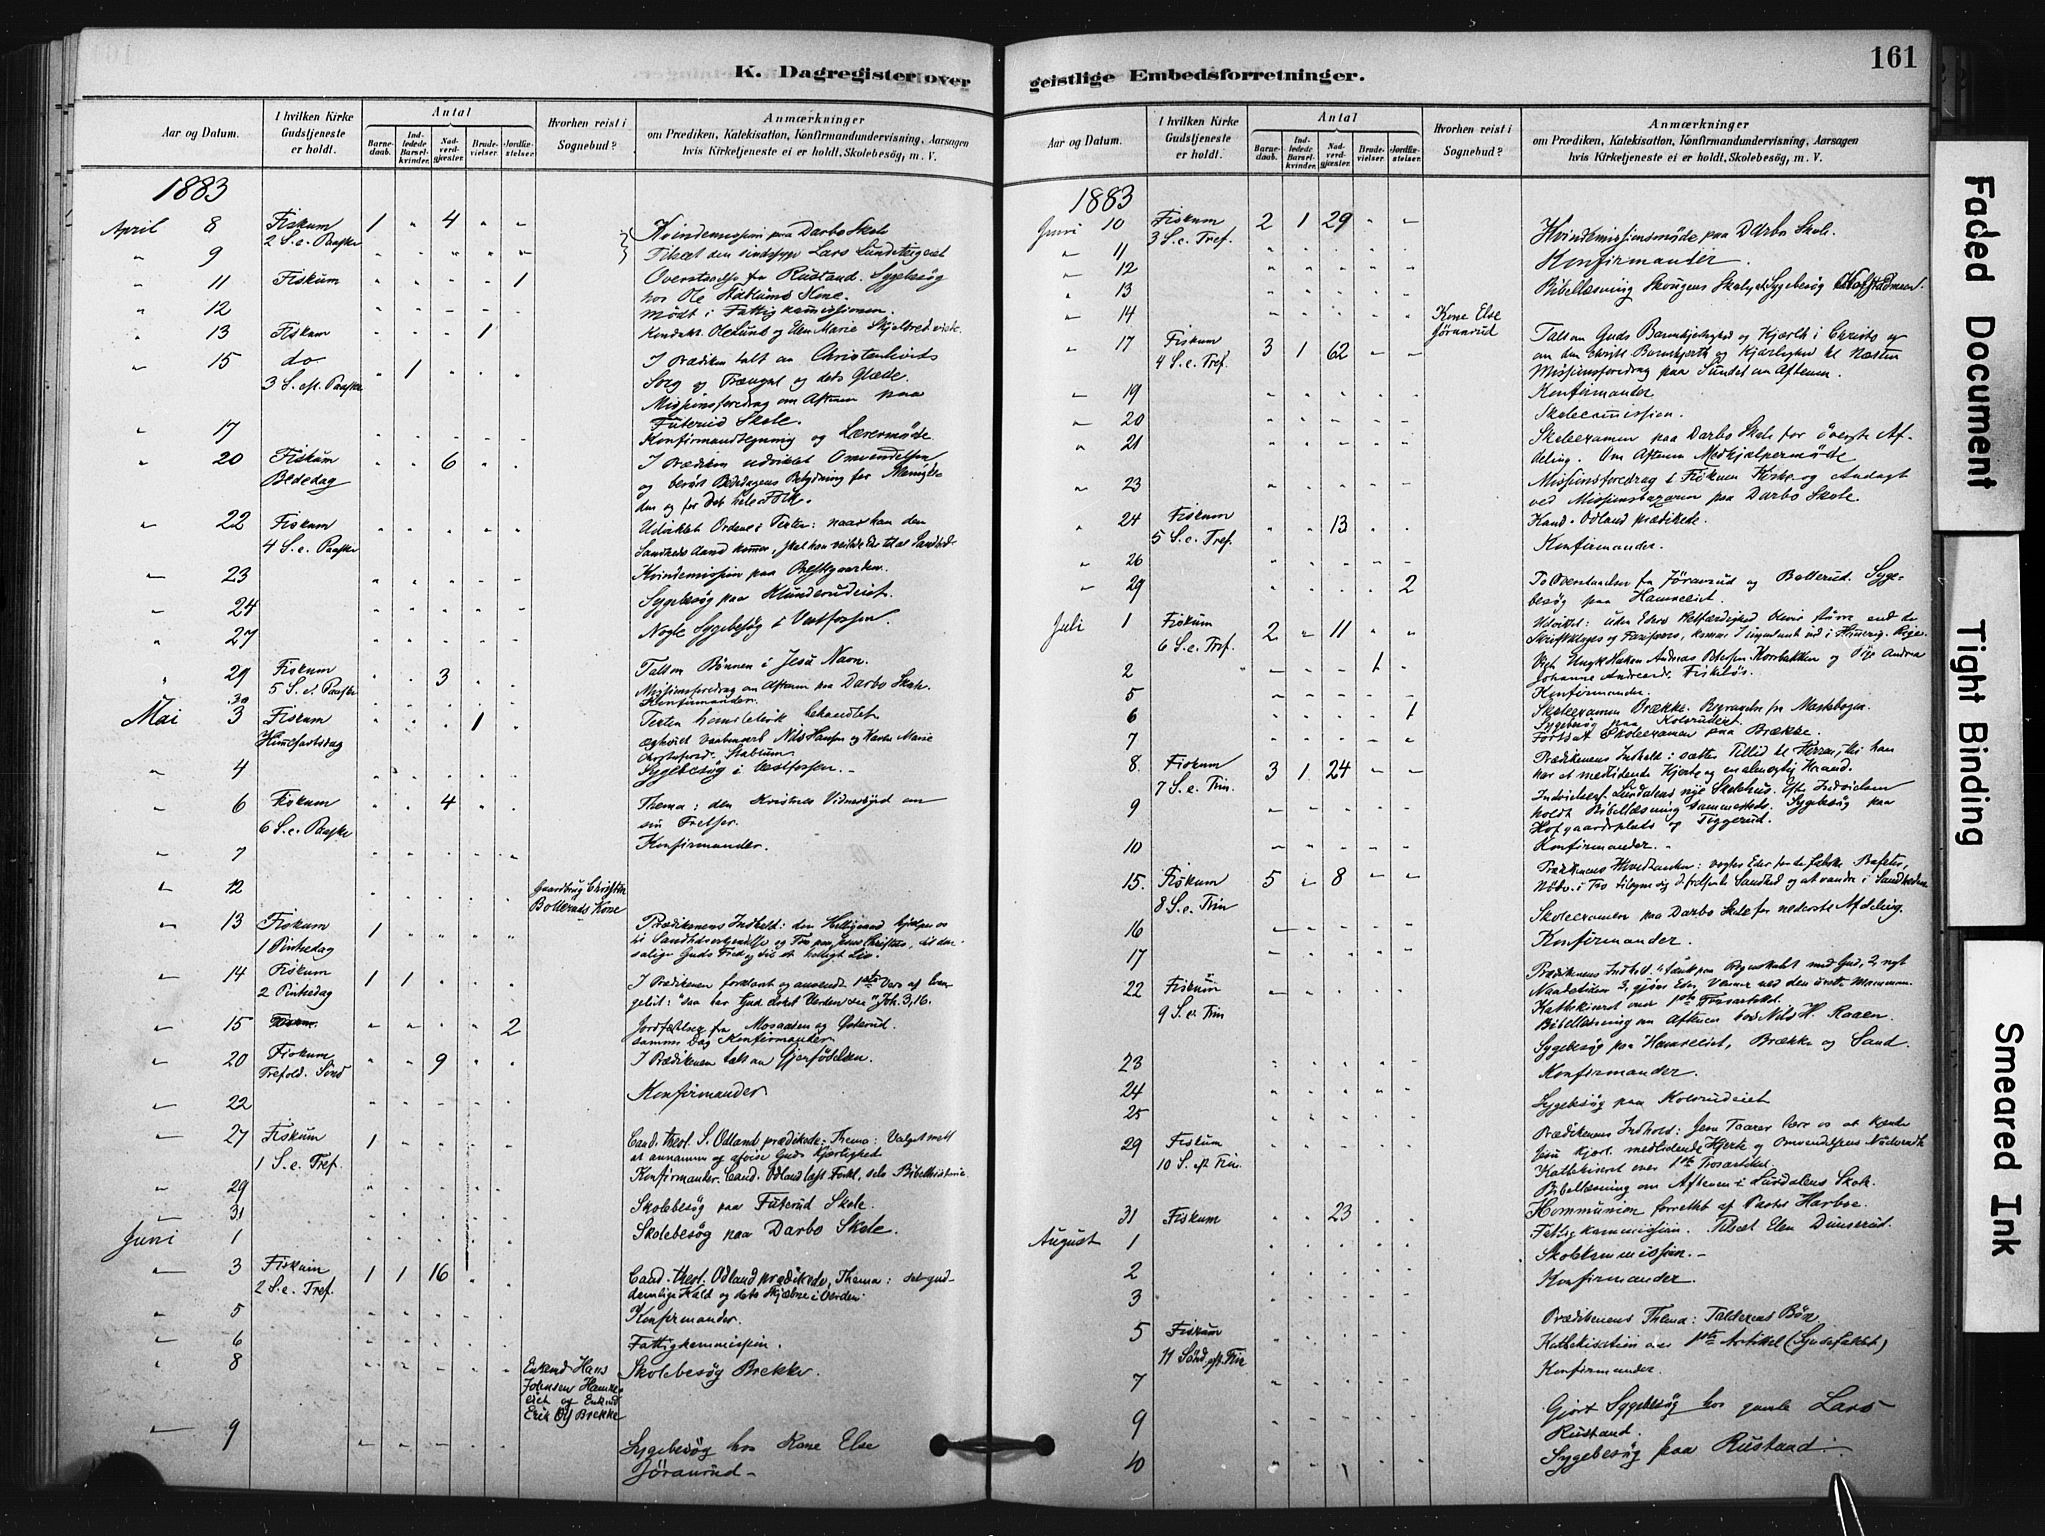 161
K. Dagregister over
geistlige Embedsforretninger.
Aar og Datum.
I hvilken Kirke Gudstjeneste er holdt.
Antal
Barne-daab.
Ind-ledede Barsel-kvinder.
Nad-verd-gjæster.
Brude-vielser.
Jordfæ-stelser.
Hvorhen reist i Sognebud?
Anmærkninger
om Prædiken, Katekisation, Konfirmandundervisning, Aarsagen
hvis Kirketjeneste ei er holdt, Skolebesøg, m. V.
1883
April 8 Fiskum 1 " 4 " " Kvindemission paa Darbo Skole
2 S. e. Paaske
" 9 Tilset den sindssyge Lars
" 11 Fiskum " " " " 1 Overstaaelse fra Rustand. Sygebesøg
hos Ole Stablums Kone.
" 12 Mødt i Fattigkommissionen.
" 13 Fiskum " " " 1 " Ole Lund og Elen Marie
" 15 do " 1 " " " I Prædiken talt om Christenlivets
3 S. eft. Paaske Sorg og Trængsel og dets Glæde.
Missionsforedrag om Aftenen paa
Futerud Skole.
" 17 Konfirmandlæsning og Lærermøde
" 20 Fiskum " " 6 " " I Prædiken udviklet Omvendelsen
Bededag og berørt Bededagens Betydning for
den og for det hele Folk.
" 22 Fiskum Udviklet Ordene i Texten: naar han den
4 S. e. Paaske Sandheds Aand kommer, skal han veilede Eder til al Sandhed.
" 23 Kvindemission paa Prestgaarden.
" 24 Sygebesøg paa Klunderudeiet.
" 27 Nogle Sygebesøg i Vestfossen.
" 29 Fiskum " " 3 " " Talt om Bønnen i Jesu Navn.
5 S. e. Paaske Missionsforedrag om Aftenen paa Darbo Skole.
30 Konfirmander.
Mai 3 Fiskum " " " 1 " Texten homiletisk behandlet
Himmelfartsdag Nils Hansen og Karen Marie
Stablum.
" 4 Sygebesøg i Vestfossen.
" 6 Fiskum " " 4 " " Thema: den Kristnes Vidnesbyrd om
6 S. e. Paaske sin Frelser.
" 7 Konfirmander.
" 12 Gaardbrug Christen
Bollerud Kone
" 13 Fiskum 1 " " " " Prædikenens Indhold: den Helligaand hjælper os
1 Pintsedag til Sandhedserkjendelse og Tro paa Jesus Christus, til den
salige Guds Fred og til et helligt Liv.
" 14 Fiskum 1 1 " " " I Prædikenen forklaret og anvendt 1ste Vers af Evan-
2 Pintsedag geliet: "saa har Gud elsket Verden etc." Joh. 3,16.
" 15 " " " " 2 Jordfæstelser fra Mosaasen og Østerud.
samme Dag Konfirmander.
" 20 Fiskum " " 9 " " I Prædikenen talt om Gjenfødelsen.
Trefold. Sønd
" 22 Konfirmander
" 27 Fiskum 1 " " " " Cand. theol. S. Odland prædikede: Thema: Valget mell
1 S. e. Tref. at annamme og afvise Guds Kjærlighed
" 29 Konfirmander. Cand. Odland Bibelhistorie
" 31 Skolebesøg paa Futerud Skole.
Juni 1 Skolebesøg paa Darbo Skole.
" 3 Fiskum 1 1 16 " " Cand. theol. Odland prædikede, Thema: det gud-
2 S. e. Tref. dommelige Kald og dets Skjæbne i Verden.
" 5 Konfirmander.
" 6 Fattigkommission.
" 8 Enkmd Hans Skolebesøg Brekke.
Johnsen Hamre-
eiet og Enkmd
Erik Brekke
" 9 Sygebesøg hos Kone Else
Jøranrud
1883
Juni 10 Fiskum 2 1 29 " " Kvindemissionsmøde paa Darbo Skole.
3 S. e. Tref.
" 11 Konfirmander.
" 12 Bibellæsning Skougens Skole, Sygebesøg
" 13
" 14 Kone Else
Jøranrud
" 17 Fiskum 3 1 62 " " Talt om Guds Barmhjertighed og Kjærl. i Christo og
4 S. e. Tref. om den Kjærlighed til Næsten
Missionsforedrag paa Sundet om Aftenen.
" 19 Konfirmander
" 20 Skolecomission.
" 21 Skoleexamen paa Darbo Skole for øverste Af-
deling. Om Aftenen Medhjælpermøde
" 23 Missionsforedrag i Fiskum Kirke og Andagt
ved Missionsbazaren paa Darbo Skole.
" 24 Fiskum " " 13 " " Kand. Odland prædikede.
5 S. e. Tref.
" 26 Konfirmander.
" 29 " " " " 2 To Overstaaelser fra Jøranrud og Bollerud. Syge-
besøg paa Hamreeiet.
Juli 1 Fiskum 2 " 11 " " Udviklet: uden Eders Retfærdighed bliver større end de
6 S. e. Tref. Skriftkloges og Farisæers, komme I ingenlunde ind i Himmerig. Rige.
2 " " " 1 " Viet Ungk Haken Andreas Olesen Korsbakken og Pige Andrea
Johanne
5 Konfirmander.
6 " " " " 1 Skoleexamen Brække. Begravelse fra Mastebogen.
Sygebesøg paa Kolsrudeiet.
7 Fortsat Skoleexamen paa Brække.
8 Fiskum 3 1 24 " " Prædikenens Indhold: sætter Tillid til Herren, thi han
7 S. e. Trin. har et medlidende Hjerte og en almægtig Haand.
9 Indvielse af Lurdalens nye Skolehus. Efter Indvielsen
holdt Bibellæsning sammesteds. Sygebesøg paa
Hofgaardsplads og Tiggerud.
10 Konfirmander.
15. Fiskum 5 " 8 " " Prædikenens Hovedtanker: vogter Eder for de falske Profeter,
8 S. e. Trin i Tro tilegne sig d. frelsende Sandhed og at vandre i Sandheden.
16 Skoleexamen paa Darbo Skole for nederste Afdeling.
17 Konfirmander.
22 Fiskum Prædikenens Indhold: tænk paa Regnskabet med Gud, 2 nyt
9 S. e. Trin Naadetiden 3, gjøre Eder Venner ved den urette Mammon.
Kathekiseret over 1ste Trosartikel.
Bibellæsning om Aftenen hos Nils H. Raaen.
23 Sygebesøg paa Hamreeiet, Brække og Sand.
24 Konfirmander.
25 Sygebesøg paa Kolsrudeiet
29 Fiskum Prædikenens Indhold: Jesu Taarer lære os at kjende
10 S. eft Trin. Jesu kjærl. medlidende Hjerte og Omvendelsens Nødvendh
Kathekiseret over 1ste Trosartikel.
Bibellæsning om Aftenen i Lurdalens Skole.
31 Fiskum " " 23 " " Kommunion forrettet af Pastor Harboe.
August 1 Fattigkommission. Tilset Elen Dunserud.
2 Skolekommission.
3 Konfirmander.
5 Fiskum Prædikenens Thema: Tolderens Bøn
11 Sønd. eft. Trin Kathekisation over 1ste Artikel (Syndefaldet)
7 Konfirmander
9 Gjort Sygebesøg hos gamle Lars
Rustand.
10 Sygebesøg paa Rustand.
Faded Document
Tight Binding
Smeared Ink